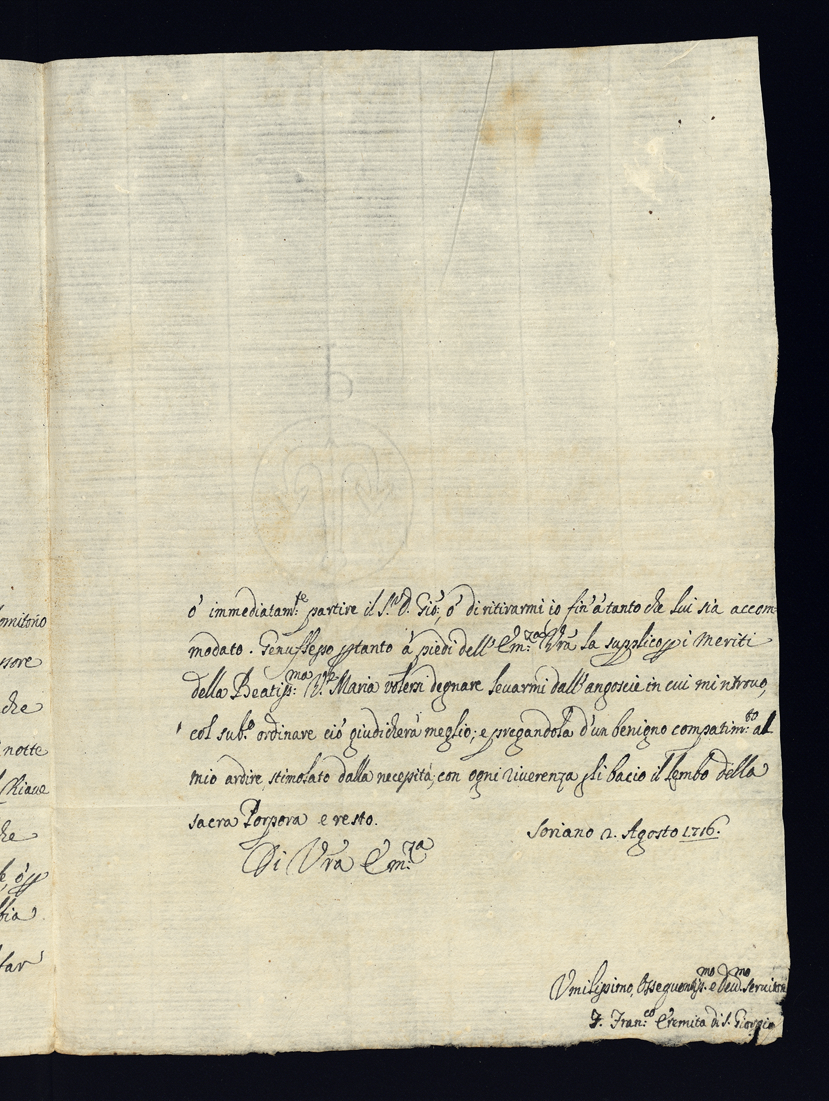 omitorio
ssore
che
notte
Chiave
he
bia
tar
ò immediatam.te partire il S.r D. Gio:, ò di ritirarmi io fin'à tanto che lui sia accom-
modato. Genuflesso ptanto à piedi dell'Em.za Vrã la supplico p i meriti
della Beatiss:ma V. Maria volersi degnare levarmi dall'angoscie in cui mi ritrovo,
col sub.o ordinare ciò giudicherà meglio; e pregandola d'un benigno compatim:to al
mio ardire, stimolato dalla necessità, con ogni riverenza gli bacio il lembo della
sacra Porpora e resto.
Soriano 2. Agosto 1716.
Di Vrã Em.za
Umilissimo, Ossequentiss.mo e Dev.mo servitore
F. Fran.co Eremita di S. Giorgio